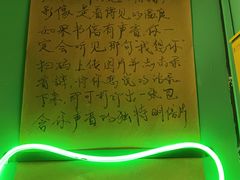 影像是看得见的温度
如果书信有声音,你一
定会听见那句我想你
扫码上传图片并点击录
音键,将你想说的话录
下来,即可打印出一张包
含你声音的独特明信片